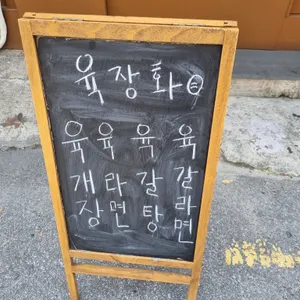 육장화
육개장
육라면
육갈탕
육갈라면